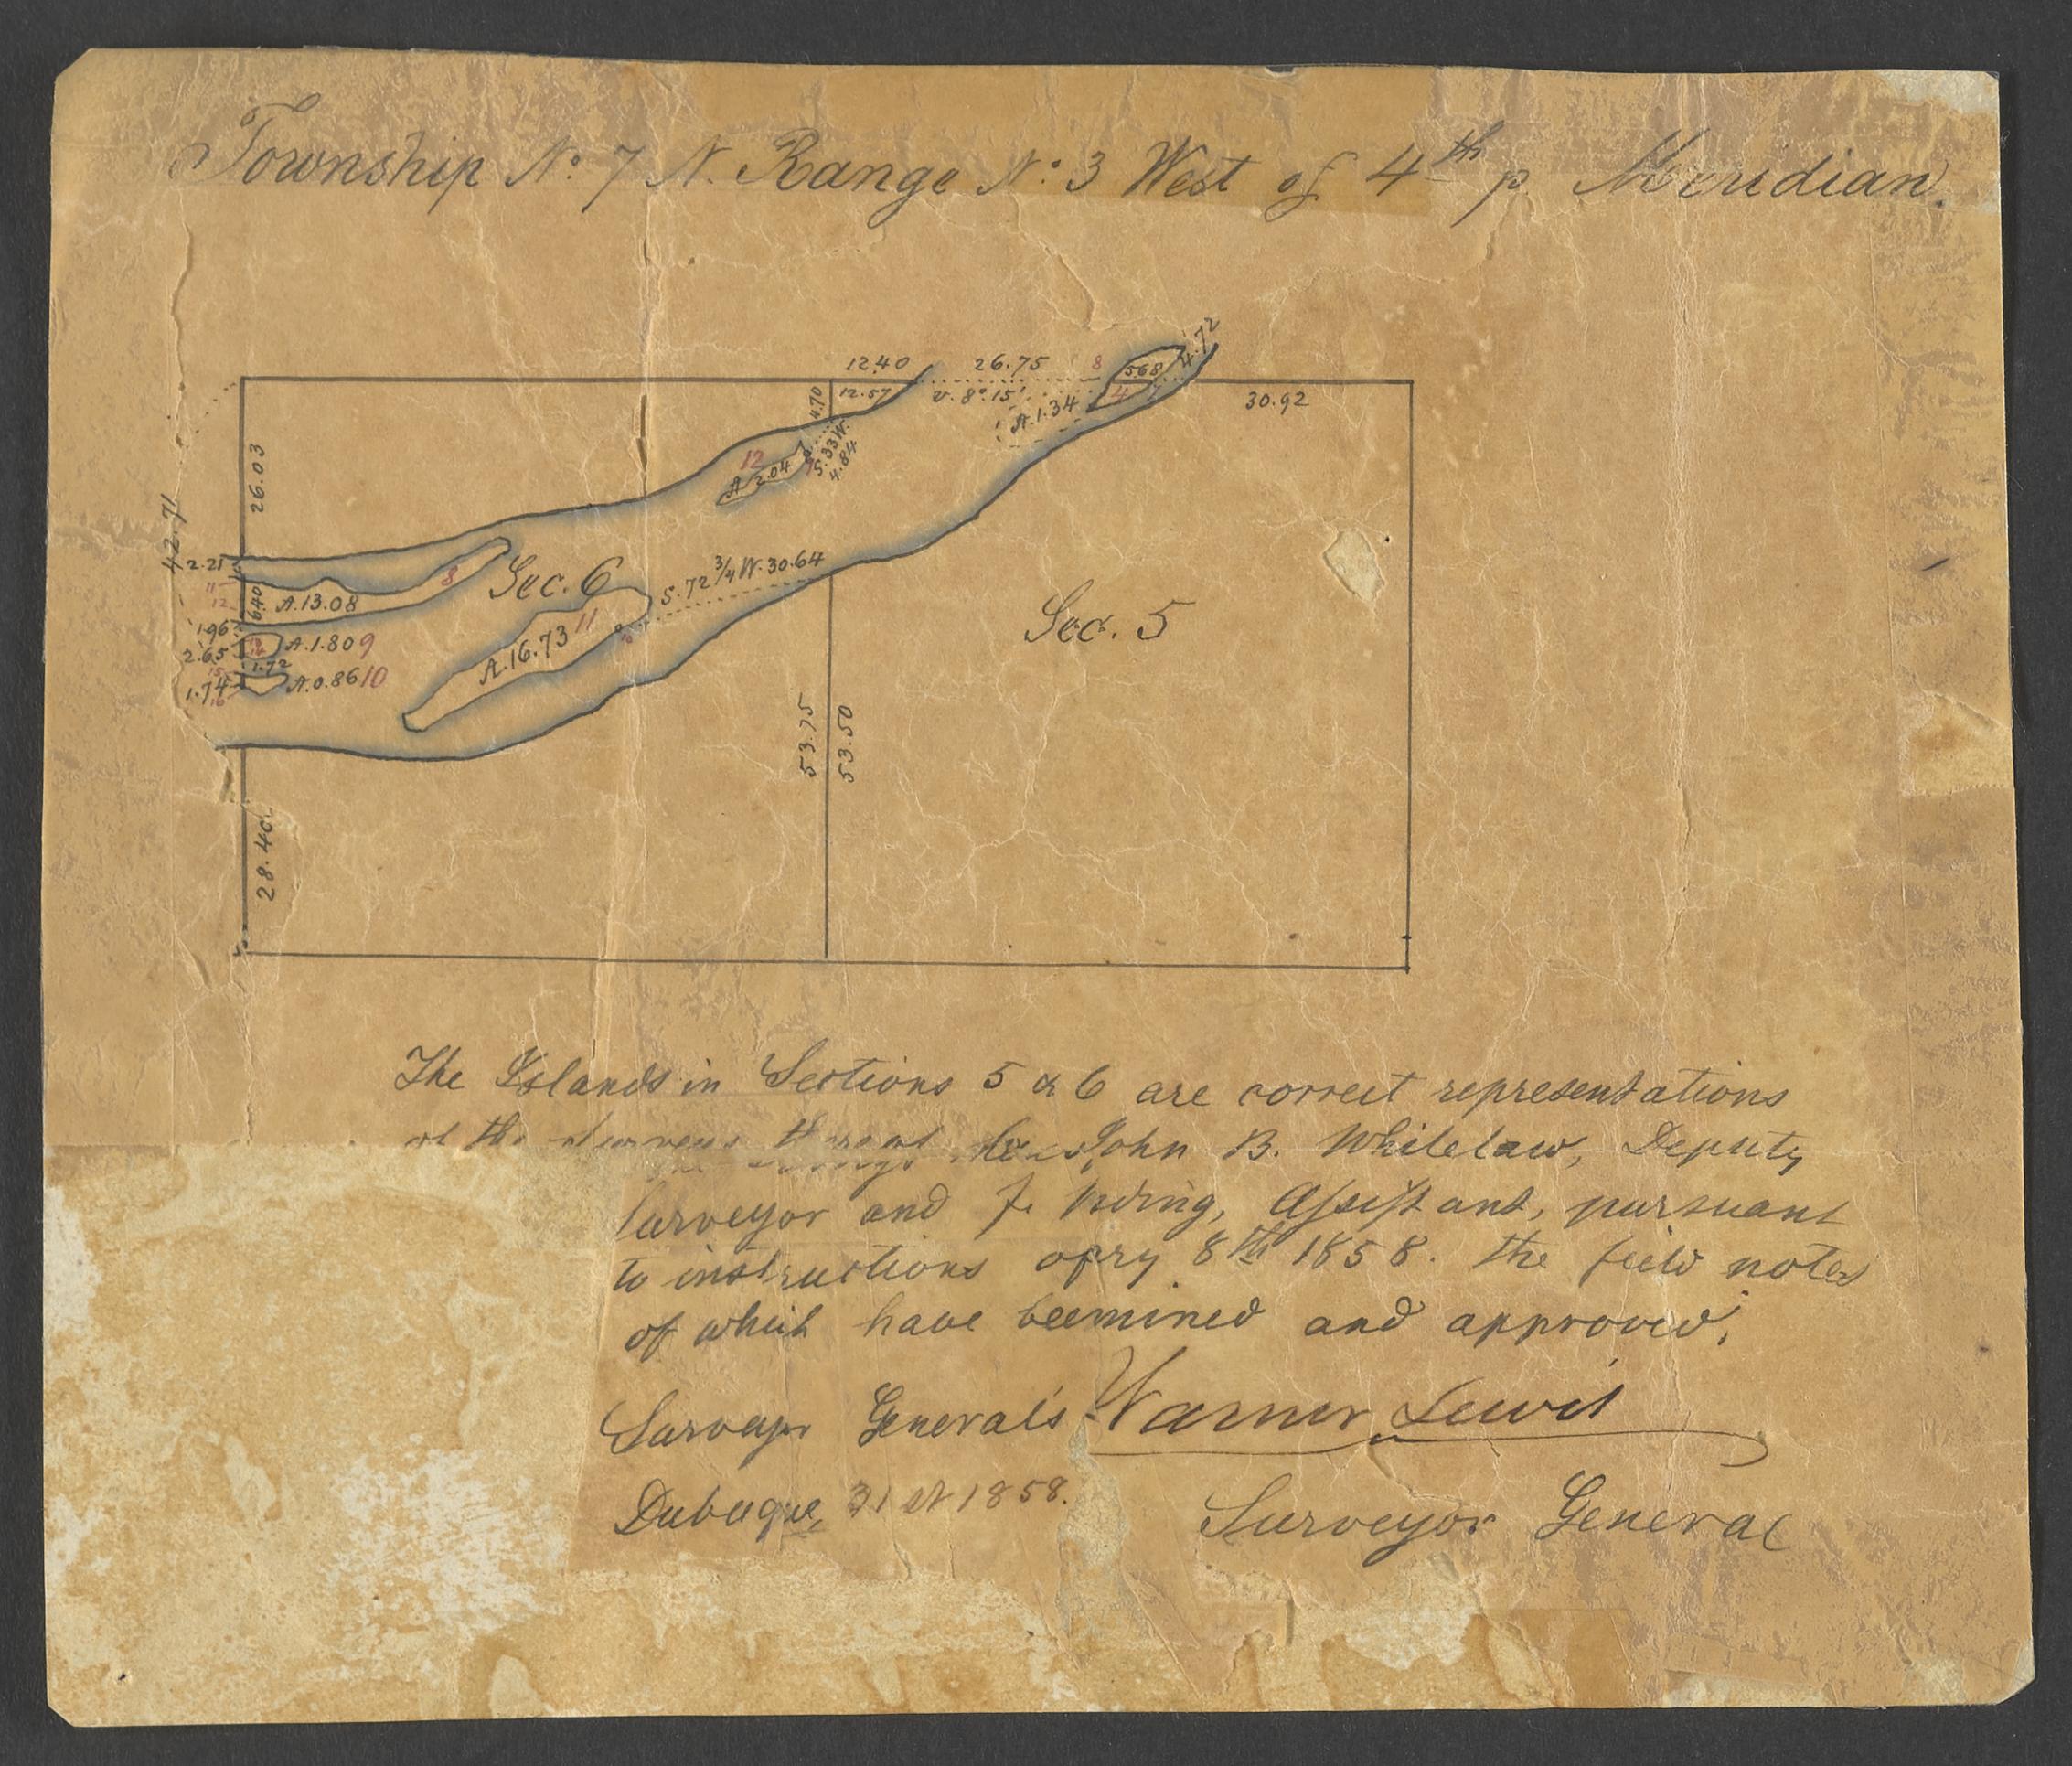 Township No. 7 N. Range No. 3 West of 4th p. Meridian.
12.40 26.75 8 568 4.72
12.57 v. 8°.15' 4 30.92
4.70
A.1.34
26.03
12
A 2.04
S.33W.
4.84
42.71
2.21
11
12
6.40
A.13.08
8
Sec. 6
S. 72 3/4 W. 30.64
Sec. 5
1.96
2.65
A.1.80 9
1.72
15
1.74
16
A.0.86 10
A.16.73 11
53.75
53.50
28.40
The Islands in Sections 5 & 6 are correct representations
John B. Whitelaw, Deputy
Surveyor and J. Assistant, pursuant
to instructions 8th 1858. the field notes
of which have and approved.
Surveyor General's Warner Lewis
Dubuque, 31st 1858.
Surveyor General